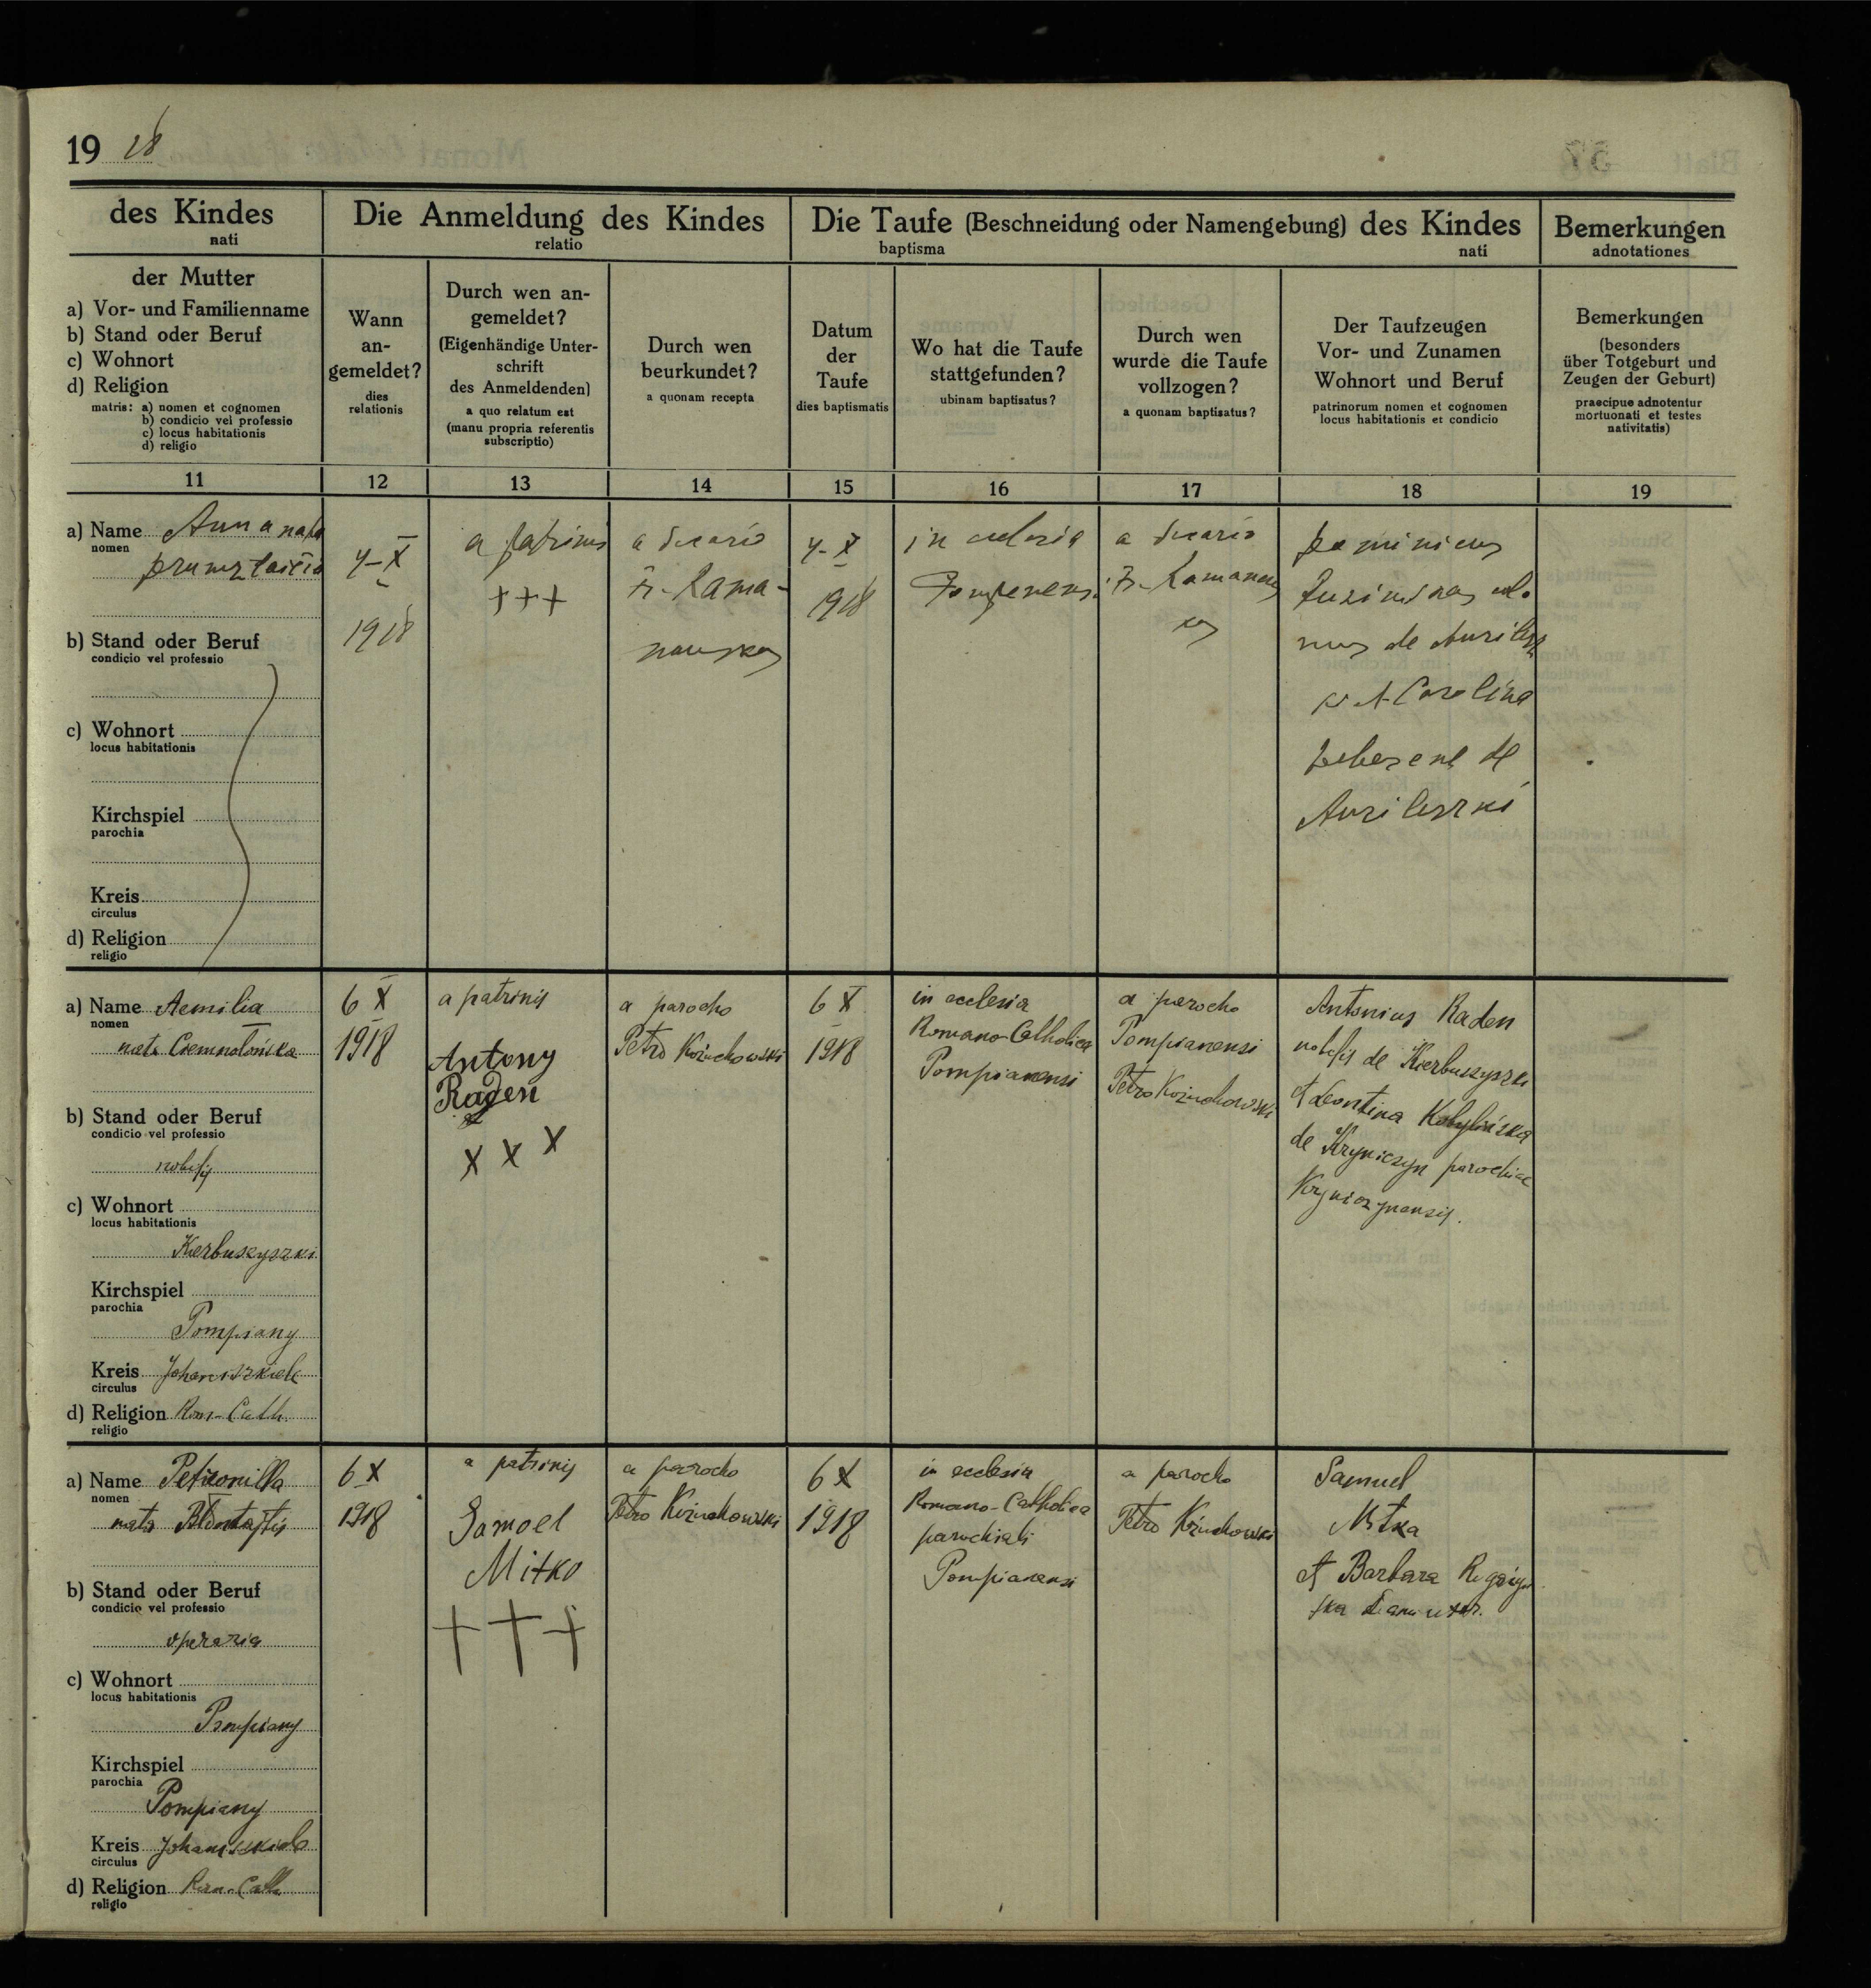 19 18
des Kindes
nati
Die Anmeldung des Kindes
relatio
Die Taufe (Beschneidung oder Namengebung) des Kindes
baptisma nati
Bemerkungen
adnotationes
der Mutter
a) Vor- und Familienname
b) Stand oder Beruf
c) Wohnort
d) Religion
matris: a) nomen et cognomen
b) condicio vel professio
c) locus habitationis
d) religio
Wann
an-
gemeldet?
dies
relationis
Durch wen an-
gemeldet?
(Eigenhändige Unter-
schrift
des Anmeldenden)
a quo relatum est
(manu propria referentis
subscriptio)
Durch wen
beurkundet?
a quonam recepta
Datum
der
Taufe
dies baptismatis
Wo hat die Taufe
stattgefunden?
ubinam baptisatus?
Durch wen
wurde die Taufe
vollzogen?
a quonam baptisatus?
Der Taufzeugen
Vor- und Zunamen
Wohnort und Beruf
patrinorum nomen et cognomen
locus habitationis et condicio
Bemerkungen
(besonders
über Totgeburt und
Zeugen der Geburt)
praecipue adnotentur
mortuonati et testes
nativitatis)
11 12 13 14 15 16 17 18 19
a) Name Anna nata
nomen
b) Stand oder Beruf
condicio vel professio
c) Wohnort
locus habitationis
Kirchspiel
parochia
Kreis
circulus
d) Religion
religio
X
1918
a patrinis
+++
a
X
1918
in
a
de
et Carolina
a) Name Aemilia
nomen
nata
b) Stand oder Beruf
condicio vel professio
nobilis
c) Wohnort
locus habitationis
Kierbuszyszki
Kirchspiel
parochia
Pompiany
Kreis Johaniszkiele
circulus
d) Religion Rom-Cath.
religio
6 X
1918
a patrinis
Antony
Raden
X X X
a parocho
Petro Kożuchowski
6 X
1918
in ecclesia
Romano-Catholica
Pompianensi
a parocho
Pompianensi
Petro Kożuchowski
Antonius Raden
nobilis de Kierbuszyszki
et Leontina Kobylińska
de parochiae
a) Name Petronilla
nomen
nata
b) Stand oder Beruf
condicio vel professio
operaria
c) Wohnort
locus habitationis
Pompiany
Kirchspiel
parochia
Pompiany
Kreis Johaniszkiele
circulus
d) Religion Rom-Cath
religio
6 X
1918
a patrinis
Samoel
Mitko
+++
a parocho
Petro Kożuchowski
6 X
1918
in ecclesia
Romano-Catholica
parochiali
Pompianensi
a parocho
Petro Kożuchowski
Samuel
Mitka
et Barbara